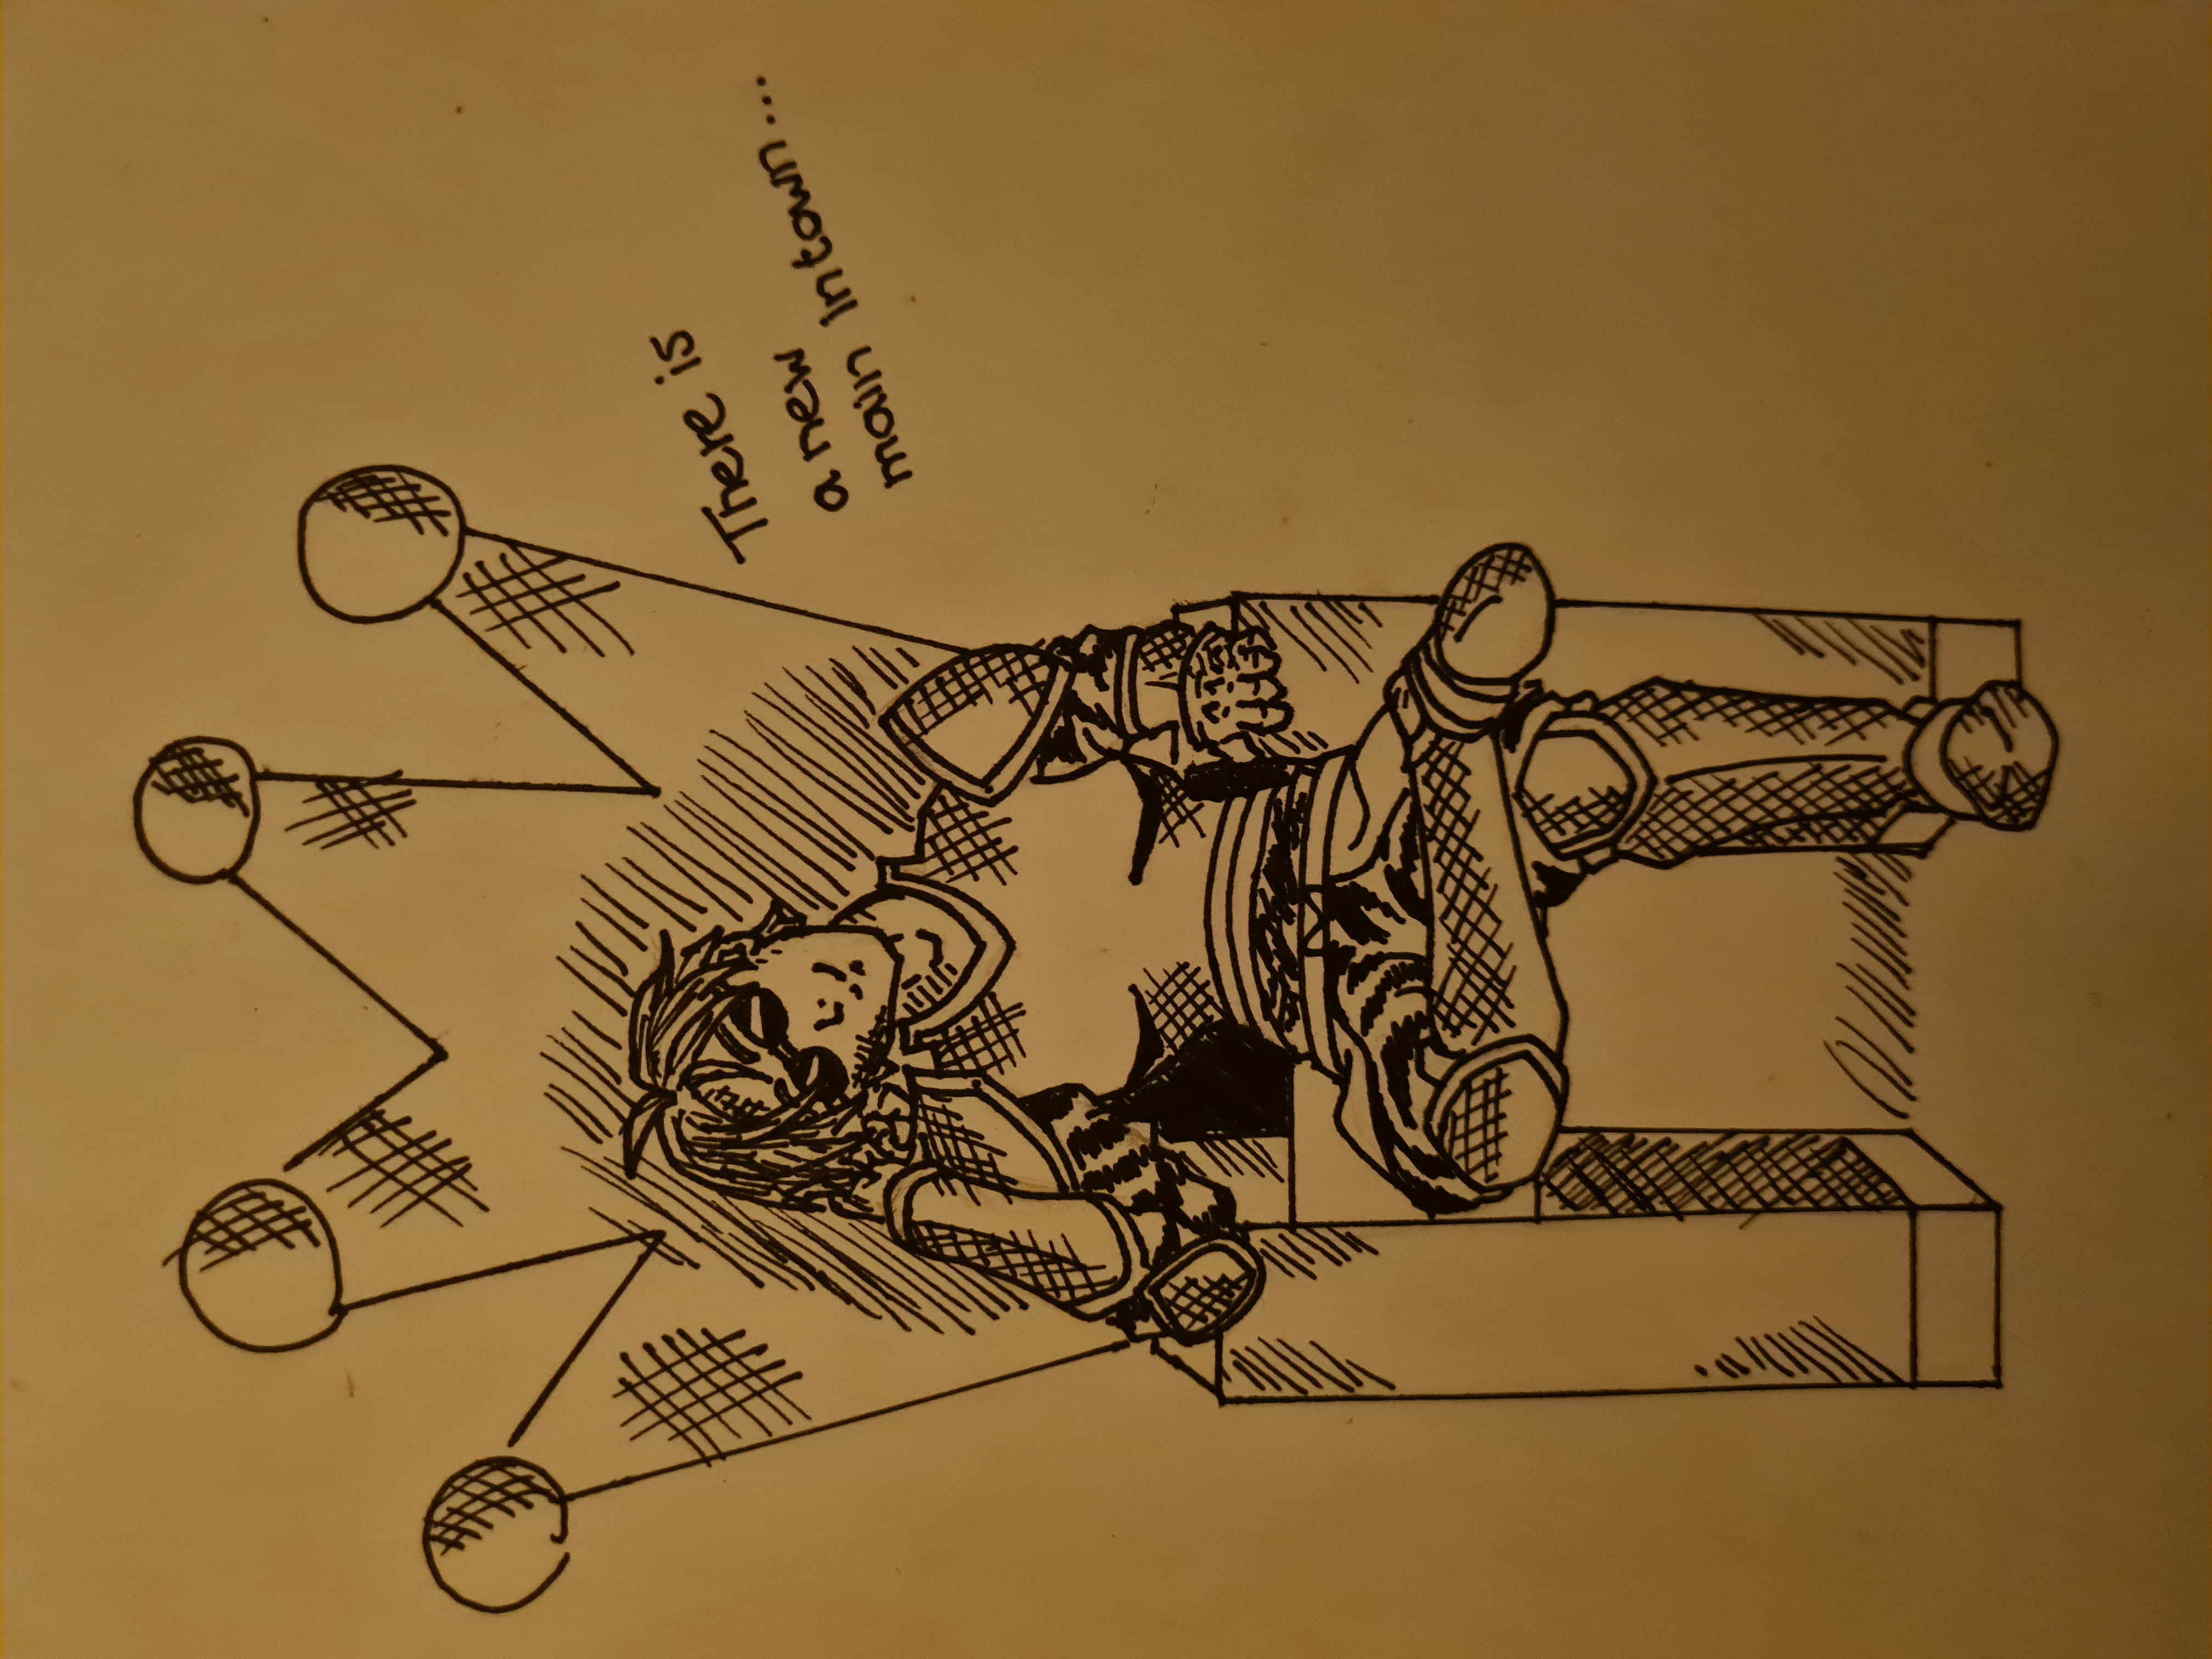 There is
a new
main in town...